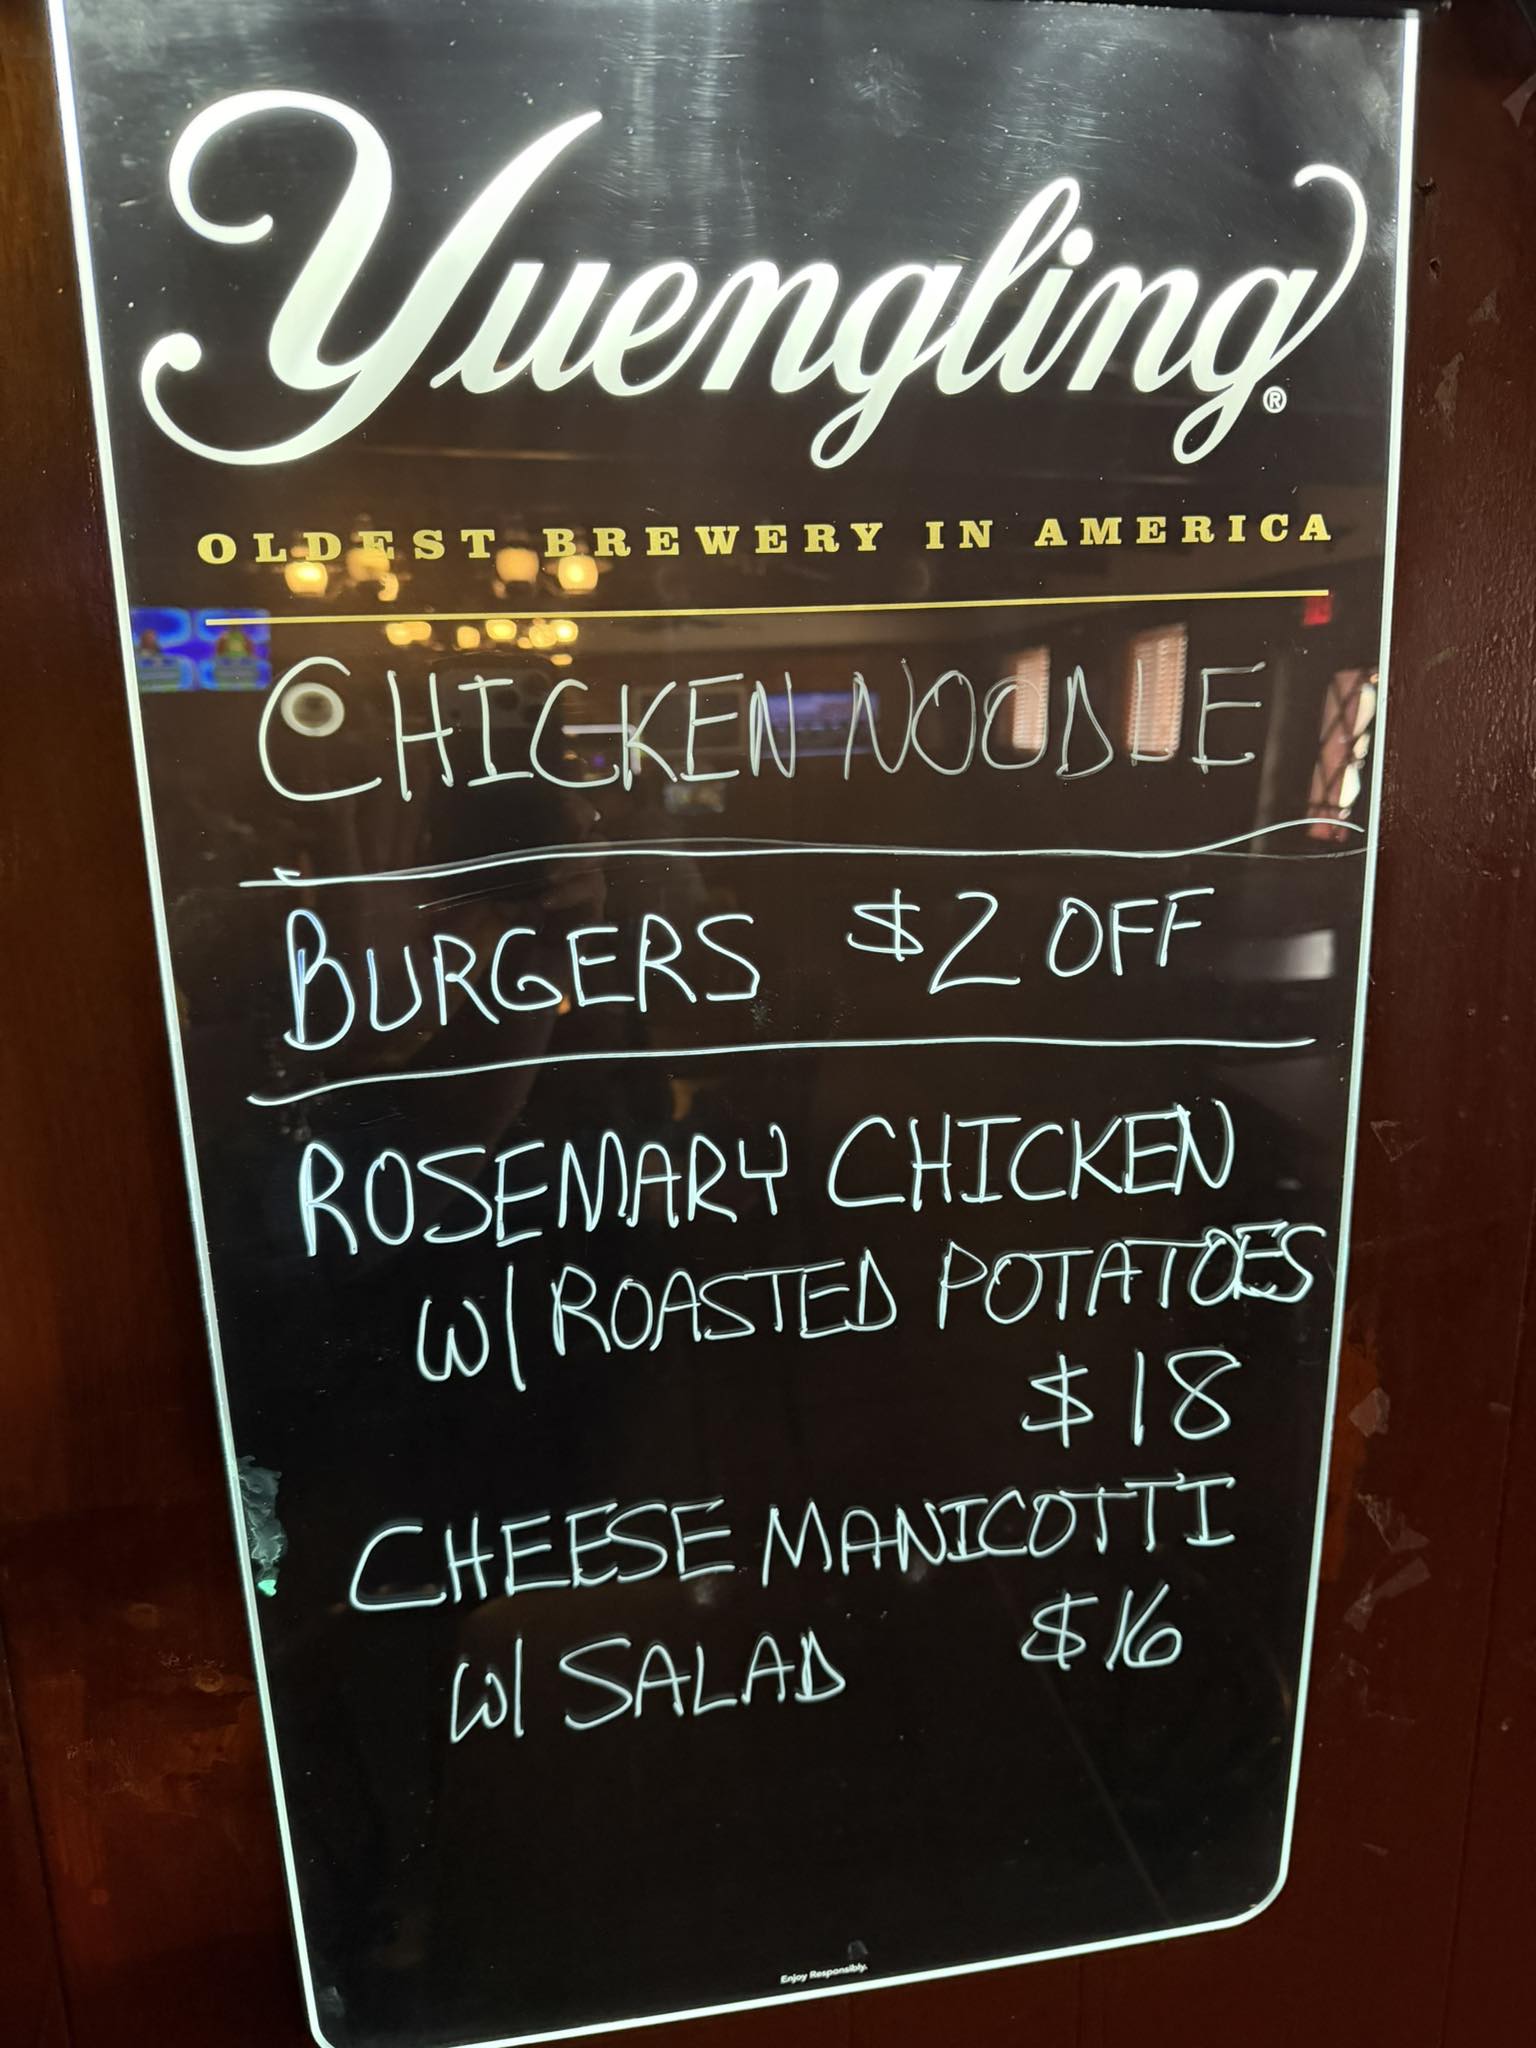 Yuengling®
OLDEST BREWERY IN AMERICA
CHICKEN NOODLE
BURGERS $2 OFF
ROSEMARY CHICKEN
W/ ROASTED POTATOES
$18
CHEESE MANICOTTI
W/ SALAD $16
Enjoy Responsibly.